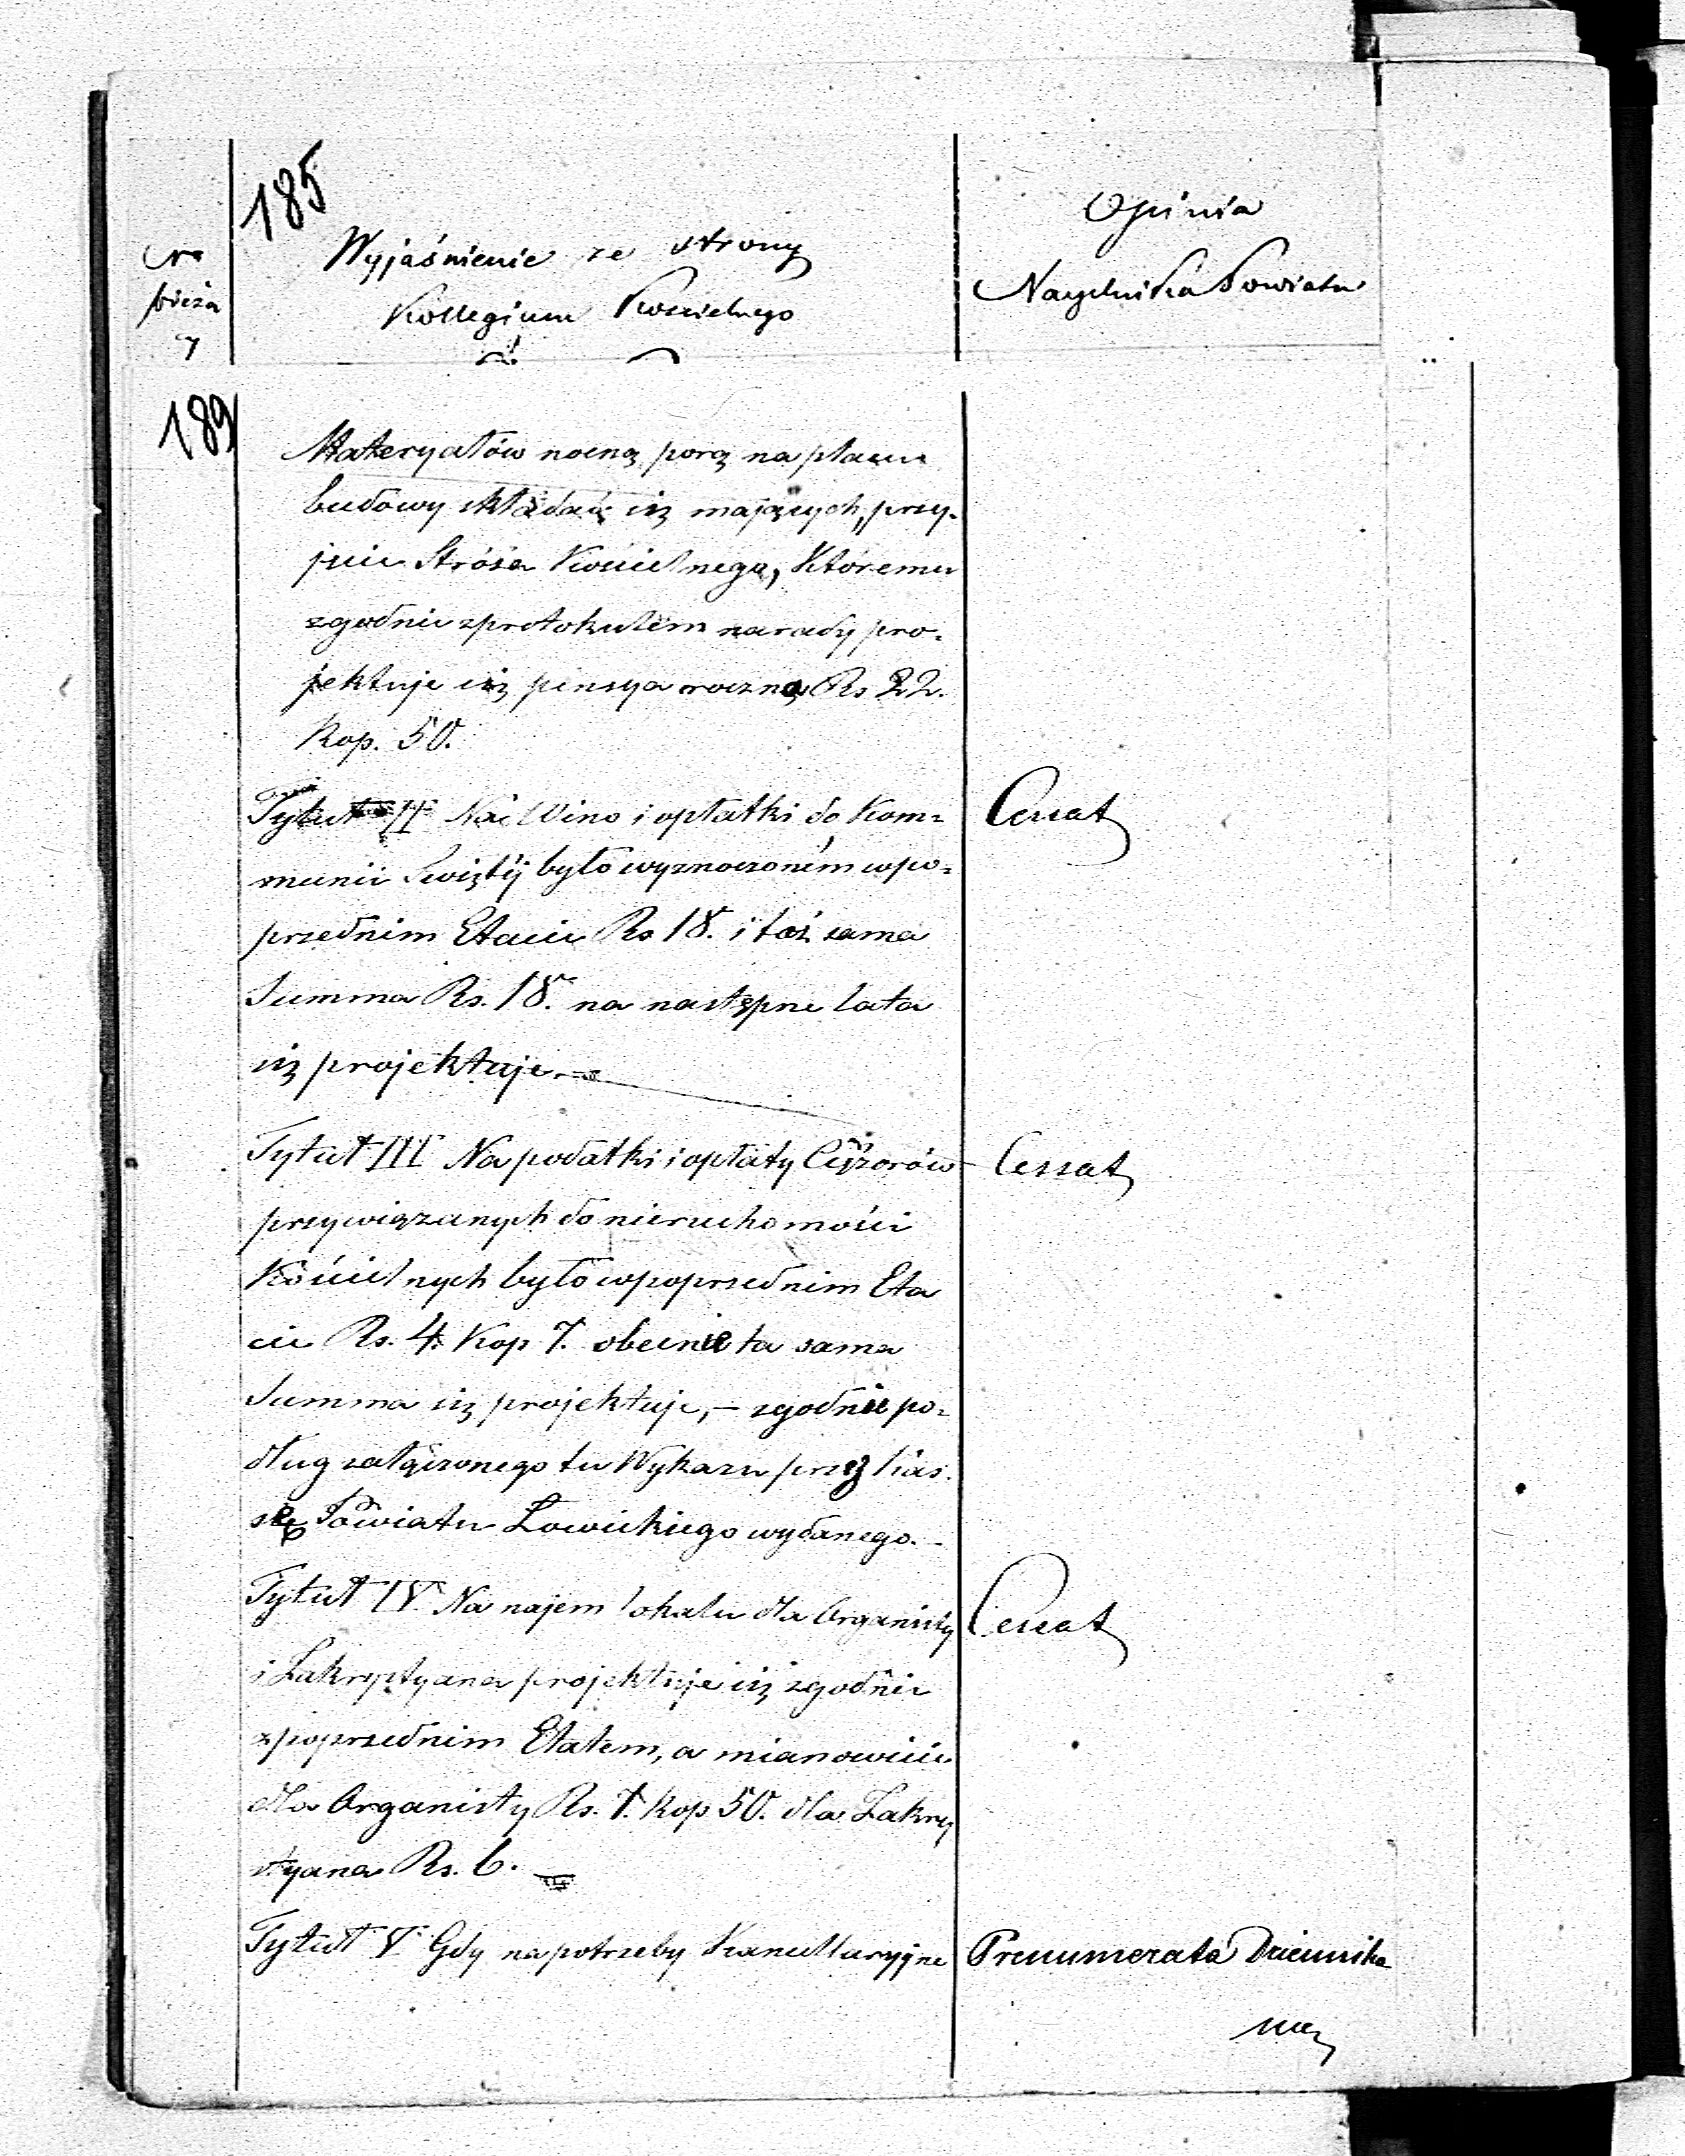 185
Nro
bieżą
cy
Wyjaśnienie ze strony
Kollegium Kościelnego
Opinia
Naczelnika Powiatu
189
Materyałów nocną porą na placu
budowy składać się mających, przy-
jęcie Stróża Kościelnego, któremu
zgodnie z protokułem narady pro-
jektuje się pensya roczna Rs 22.
Kop. 50.
Tytuł II Na Wino i opłatki do Kom-
munii Swiętéj było wyznaczoném w po-
przednim Etacie Rs 18. i taż sama
Summa Rs. 18. na następne lata
się projektuje.
Cessat
Tytuł III Na podatki i opłaty Ciężarów
przywiązanych do nieruchomości
Kościelnych było w poprzednim Eta
cie Rs. 4. Kop 7. obecnie ta sama
Summa się projektuje, – zgodnie po-
dług załączonego tu Wykazu przez Kas-
sę Powiatu Łowickiego wydanego.
Cessat
Tytuł IV Na najem lokalu dla Organisty
i Zakrystyana projektuje się zgodnie
z poprzednim Etatem, a mianowicie
dla Organisty Rs. 7. Kop 50. dla Zakry
styana Rs. 6.
Cessat
Tytuł V Gdy na potrzeby Kancellaryjne
Prenumerata Dziennika